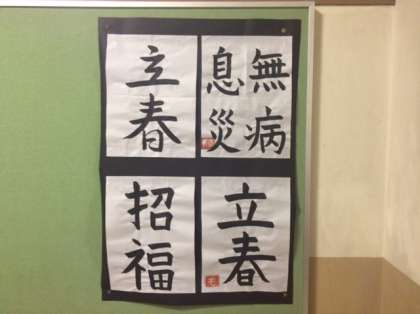 無病
息災
立春
立春
招福